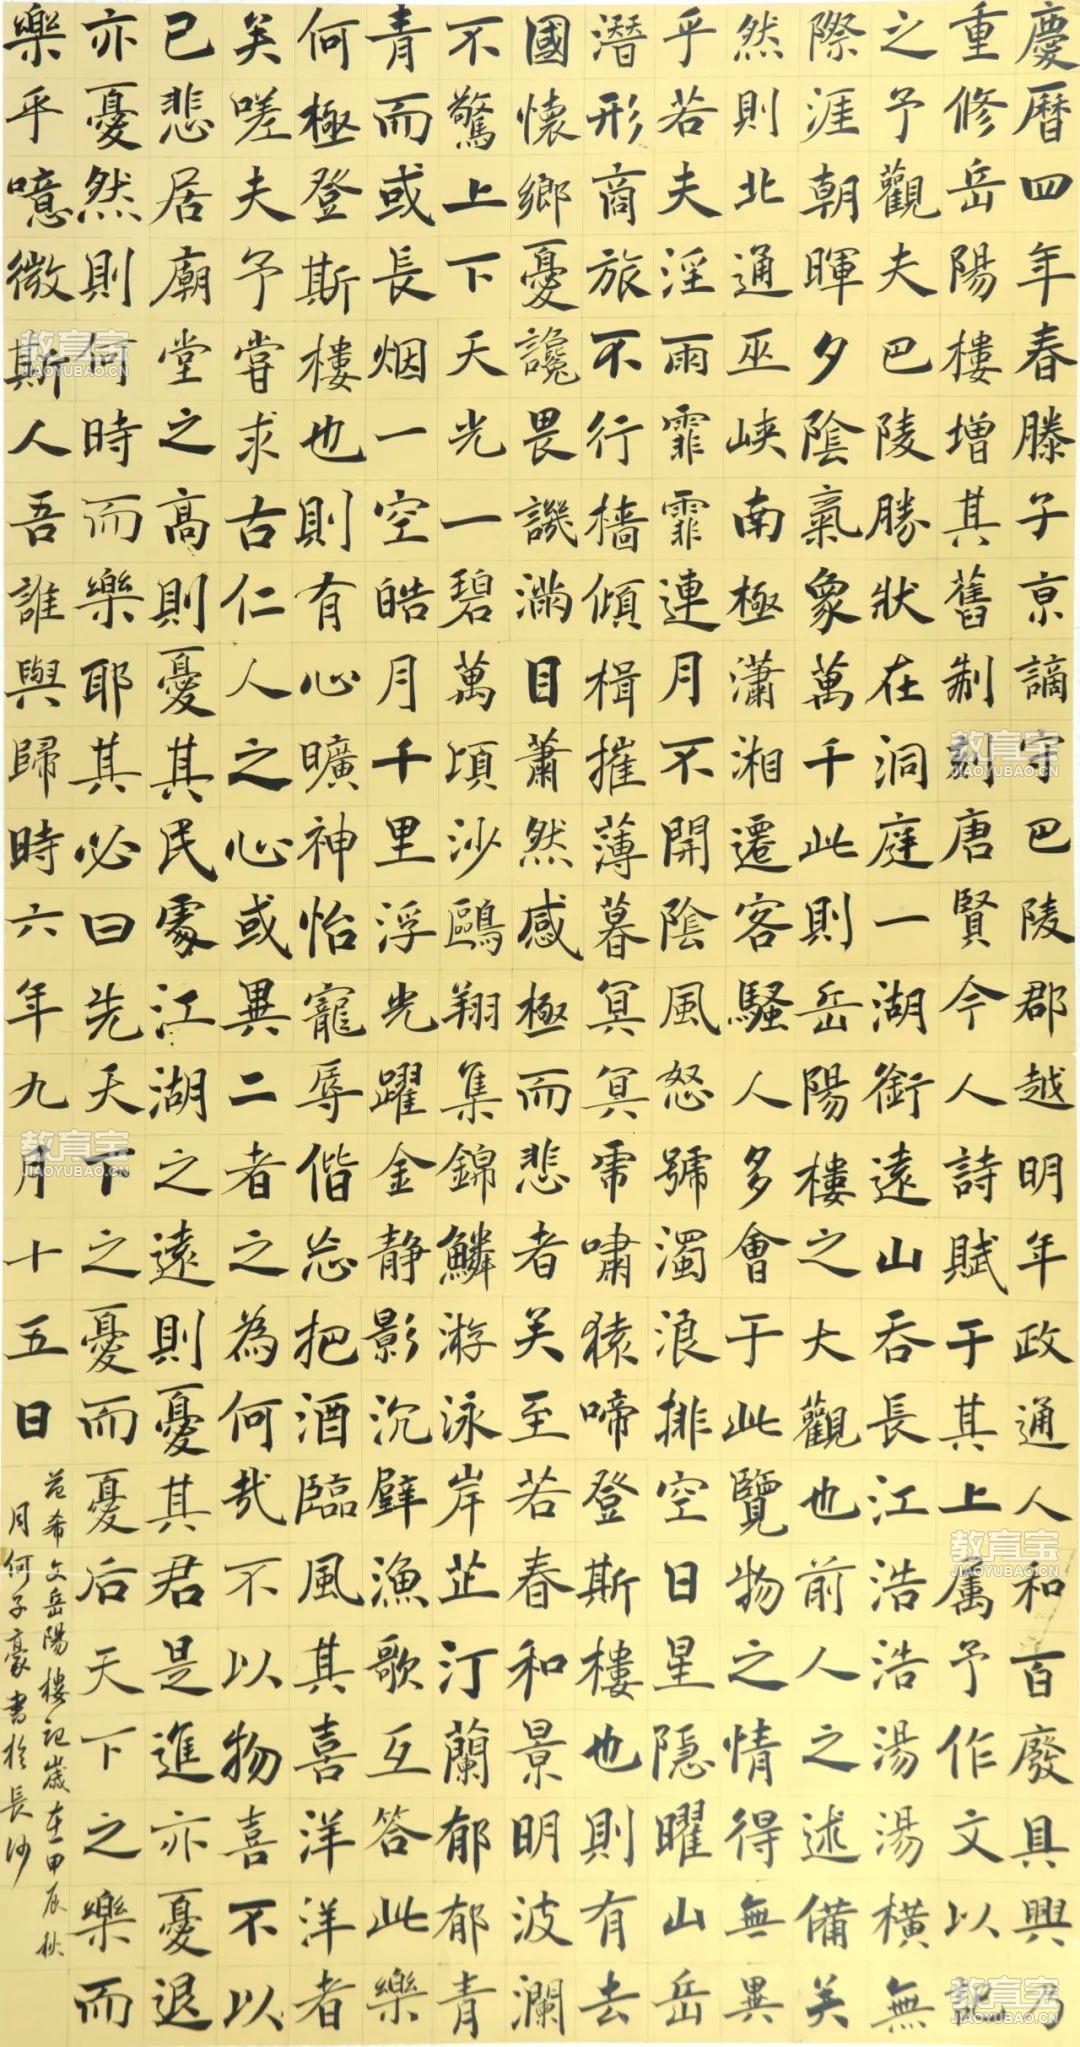 慶曆四年春滕子京謫守巴陵郡越明年政通人和百廢具興乃
重修岳陽樓增其舊制刻唐賢今人詩賦于其上属予作文以記
之予觀夫巴陵勝狀在洞庭一湖銜遠山吞長江浩浩湯湯橫無
際涯朝暉夕陰氣象萬千此則岳陽樓之大觀也前人之述備矣
然則北通巫峽南極瀟湘遷客騷人多會于此覽物之情得無異
乎若夫淫雨霏霏連月不開陰風怒號濁浪排空日星隱曜山岳
潛形商旅不行檣傾楫摧薄暮冥冥虎嘯猿啼登斯樓也則有去
國懷鄉憂讒畏譏滿目蕭然感極而悲者矣至若春和景明波瀾
不驚上下天光一碧萬頃沙鷗翔集錦鱗游泳岸芷汀蘭郁郁青
青而或長烟一空皓月千里浮光躍金静影沉璧漁歌互答此樂
何極登斯樓也則有心曠神怡寵辱偕忘把酒臨風其喜洋洋者
矣嗟夫予嘗求古仁人之心或異二者之為何哉不以物喜不以
己悲居廟堂之高則憂其民處江湖之遠則憂其君是進亦憂退
亦憂然則何時而樂耶其必曰先天下之憂而憂后天下之樂而
樂乎噫微斯人吾誰與歸時六年九月十五日
范希文岳陽樓記歲在甲辰秋
月何子豪書於長沙
教育宝
JIAOYUBAO.CN
教育宝
JIAOYUBAO.CN
教育宝
JIAOYUBAO.CN
教育宝
JIAOYUBAO.CN
教育宝
JIAOYUBAO.CN